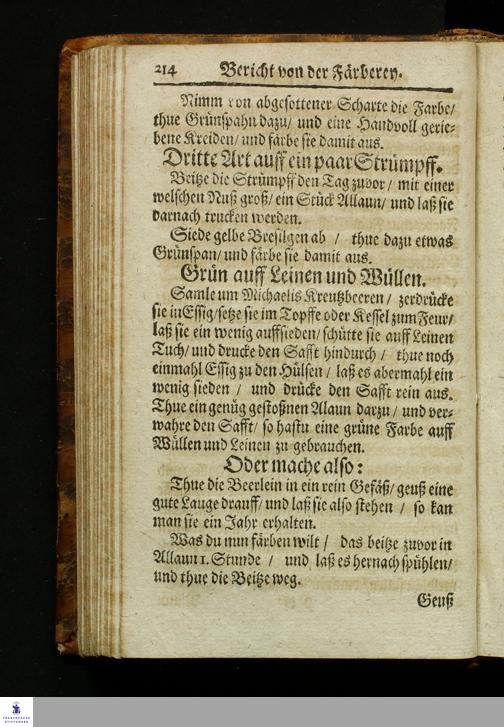 214 Bericht von der Färberey.
Nimm von abgesottener Scharte die Farbe/
thue Grünspahn dazu/ und eine Handvoll gerie-
bene Kreiden/ und färbe sie damit aus.
Dritte Art auff ein paar Strümpff.
Beitze die Strümpff den Tag zuvor/ mit einer
welschen Nuß groß/ ein Stück Allaun/ und laß sie
darnach trucken werden.
Siede gelbe Bresilgen ab / thue dazu etwas
Grünspan/ und färbe sie damit aus.
Grün auff Leinen und Wüllen.
Samle um Michaelis Kreutzbeeren / zerdrücke
sie in Essig/ setze sie im Topffe oder Kessel zum Feur/
laß sie ein wenig auffsieden/ schütte sie auff Leinen
Tuch/ und drucke den Safft hindurch / thue noch
einmahl Essig zu den Hülsen / laß es abermahl ein
wenig sieden / und drücke den Safft rein aus.
Thue ein genüg gestoßnen Alaun darzu/ und ver-
wahre den Safft/ so hastu eine grüne Farbe auff
Wüllen und Leinen zu gebrauchen.
Oder mache also:
Thue die Beerlein in ein rein Gefäß/ geuß eine
gute Lauge drauff/ und laß sie also stehen / so kan
man sie ein Jahr erhalten.
Was du nun färben wilt / das beitze zuvor in
Allaun 1. Stunde / und laß es hernach spühlen/
und thue die Beitze weg.
Geuß
FRANCKESCHE
STIFTUNGEN